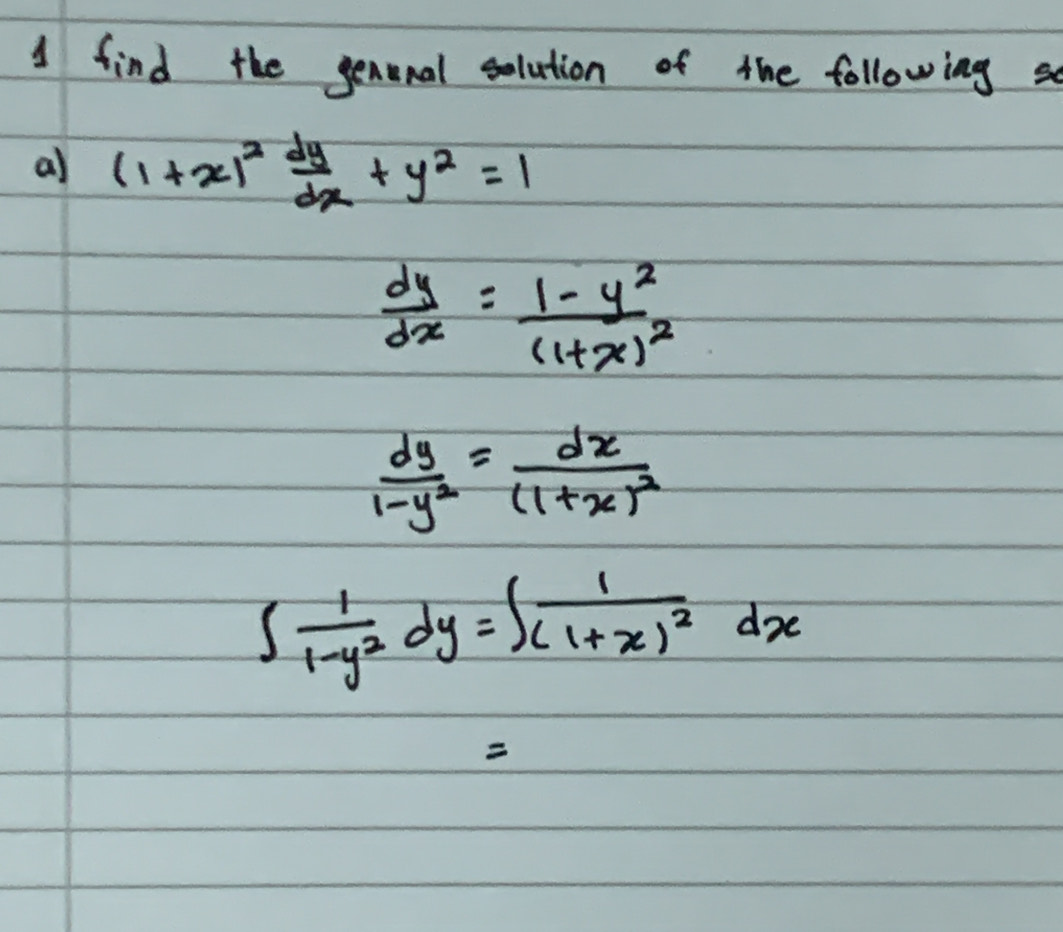 1 find the general solution of the following
a) (1+x)² dy/dx + y² = 1
dy/dx = 1-y²/(1+x)²
dy/1-y² = dx/(1+x)²
∫ 1/1-y² dy = ∫ 1/(1+x)² dx
=